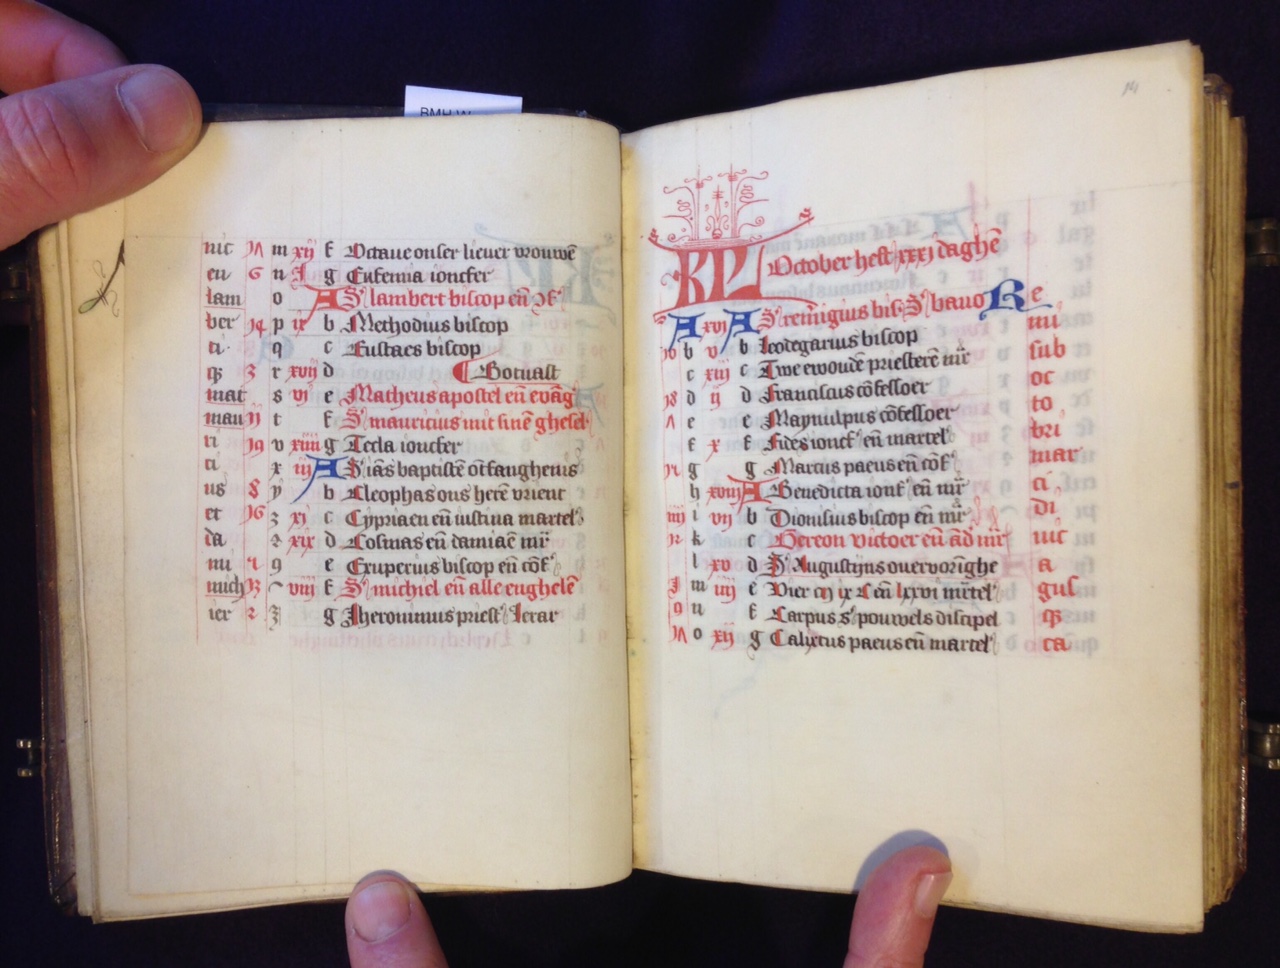 BMH W
nic m xij f Octaue onser liever vrouwē
en 6 n J g Eufemia ioncfer
lam o A S' lambert biscop eñ
ber 14 p ix b Methodius biscop
ti q c Eustaes biscop
qz 3 r xvij d Gotuast
mat s vj e Matheus apostel eñ evāg
mau 11 t f S' mauricius mit sinē ghesel
ri 19 v xiiij g Tecla ioncfer
ti x iij A S' iās baptistē ōtfanghenis
us 8 y b Cleophas ons herē vrient
et 16 z xj c Cypriaen eñ iustina martel'
da xix d Cosmas eñ damiaē mr̄
ni 9 e Exuperius biscop eñ cōf'
mich 13 viij f S' michiel eñ alle enghelē
ier 2 g Jheronimus priest' Jerar
14
KL October heft xxxj daghē
A xvj A S' remigius bis' S' bavo Re
16 b v b leodegarius biscop mi
c xiij c Twe ewoudē priesterē mr̄ sub
18 d ij d Franciscus cōfessoer oc
e e Maynulpus cōfessoer to
f x f Fides ioncf' eñ martel' bri
g g Marcus paeus eñ cōf' mar
h xviij A Benedicta ionf' eñ mr̄ ci
iiij i vij b Dionisius biscop eñ mr̄ di
k c Gereon victoer eñ ād mr̄ nic
l xv d S' Augustijns overvorīghe a
J m iiij e Vier eñ lxxvi mr̄tel' gus
9 n f Carpus s' pouwels discipel qz
o xij g Calixtus paeus eñ martel' ca